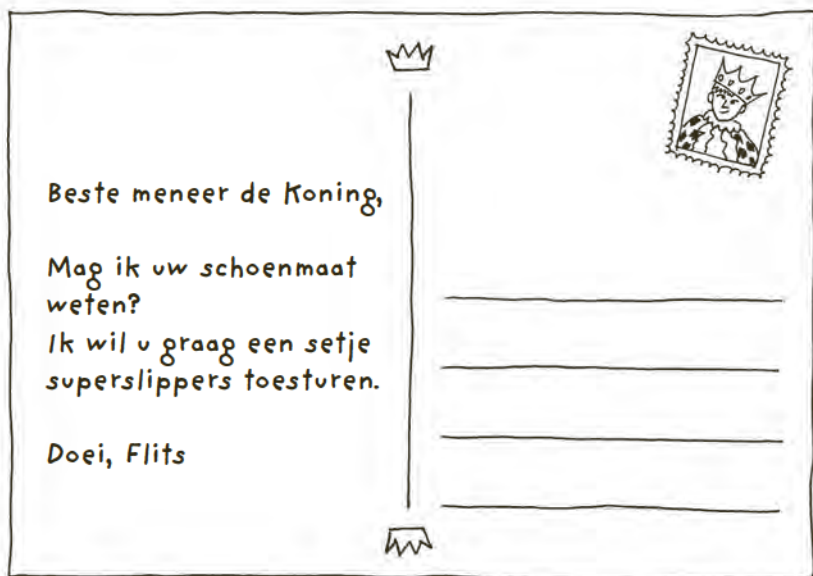 Beste meneer de Koning,
Mag ik uw schoenmaat
weten?
Ik wil u graag een setje
superslippers toesturen.
Doei, Flits